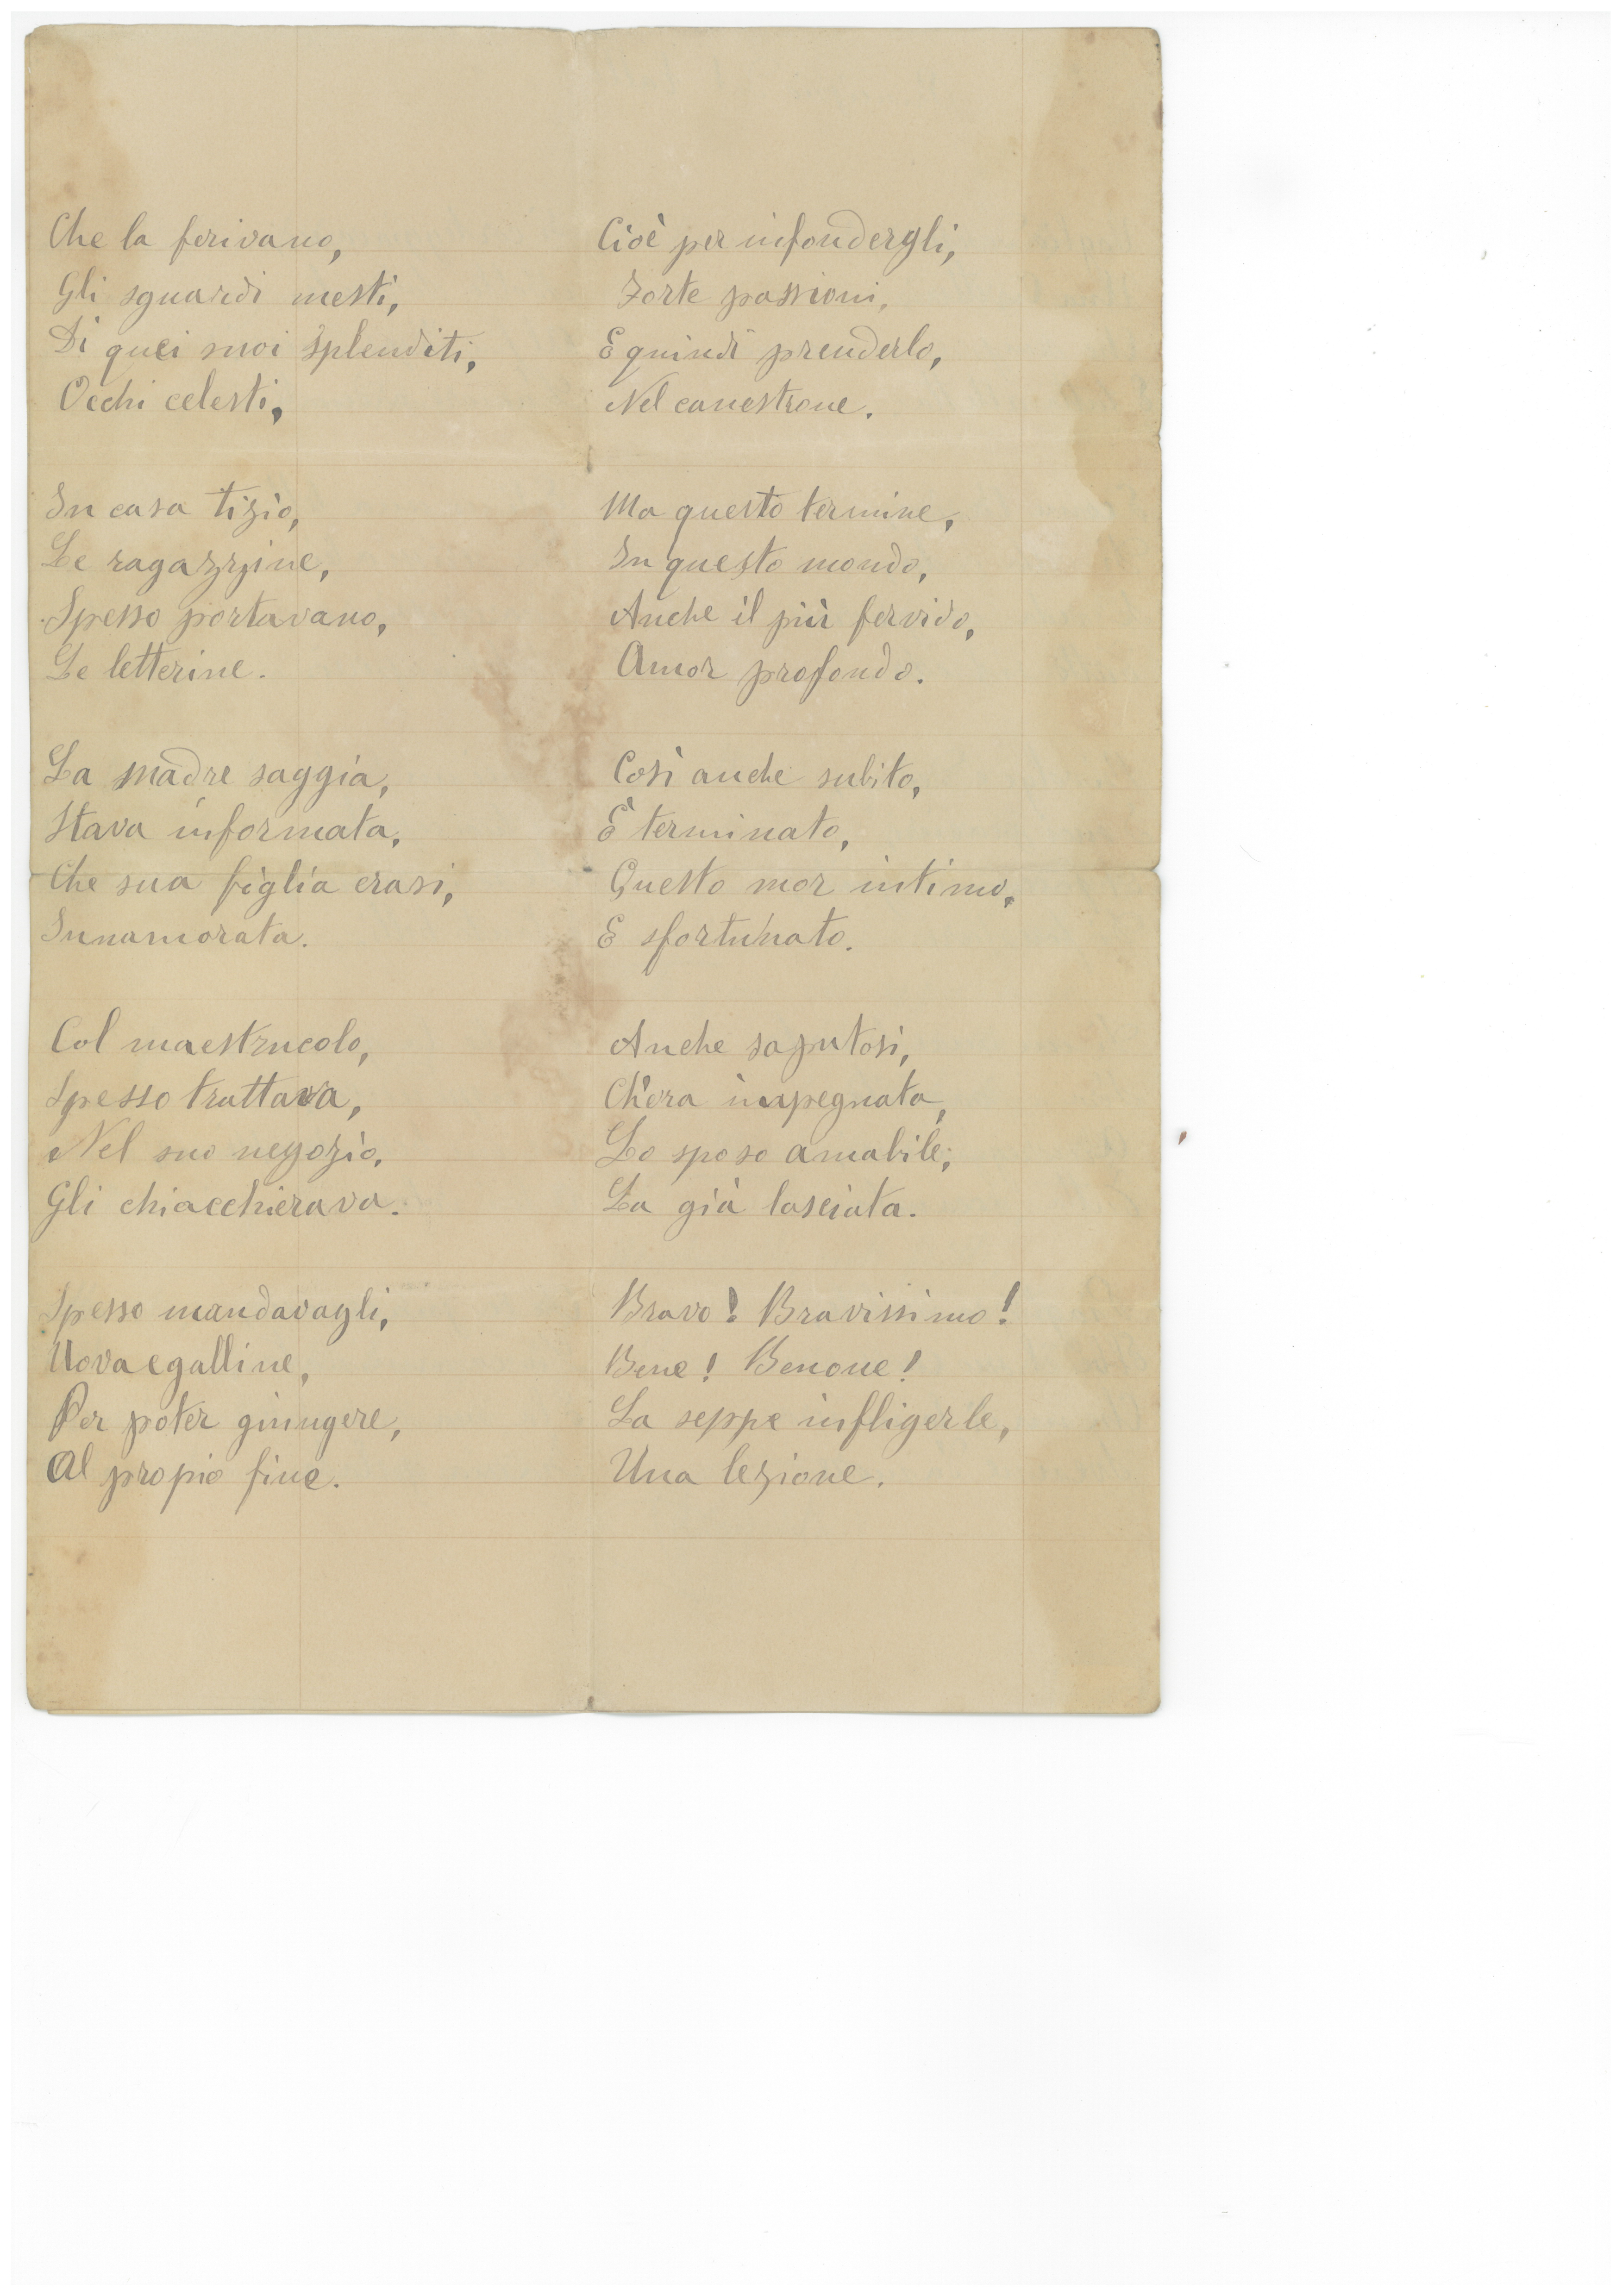 Che la ferivano,
Gli sguardi mesti,
Di quei suoi splenditi,
Occhi celesti,
In casa tizio,
Le ragazzine,
Spesso portavano,
Le letterine.
La madre saggia,
Stava informata,
Che sua figlia erasi,
Innamorata.
Col maestrucolo,
Spesso trattava,
Nel suo negozio,
Gli chiacchierava.
Spesso mandavagli,
Uova e galline,
Per poter giungere,
Al propio fine.
Cioè per infondergli,
Forte passioni,
E quindi prenderlo,
Nel canestrone.
Ma questo termine,
In questo mondo,
Anche il più fervido,
Amor profondo.
Così anche subito,
È terminato,
Questo mor intimo,
E sfortunato.
Anche saputosi,
Ch'era impegnata,
Lo sposo amabile,
La già lasciata.
Bravo! Bravissimo!
Bene! Benone!
La seppe infligerle,
Una lezione.